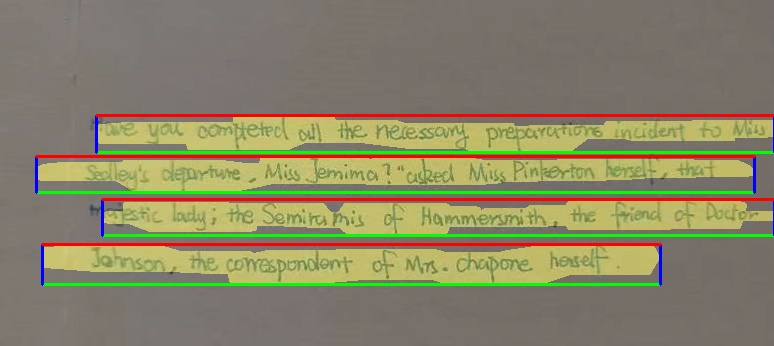 Have you completed all the necessary preparations incident to Miss
Sedley's departure, Miss Jemima? "asked Miss Pinkerton herself, that
majestic lady; the Semiramis of Hammersmith, the friend of Doctor
Johnson, the correspondent of Mrs. chapone herself.